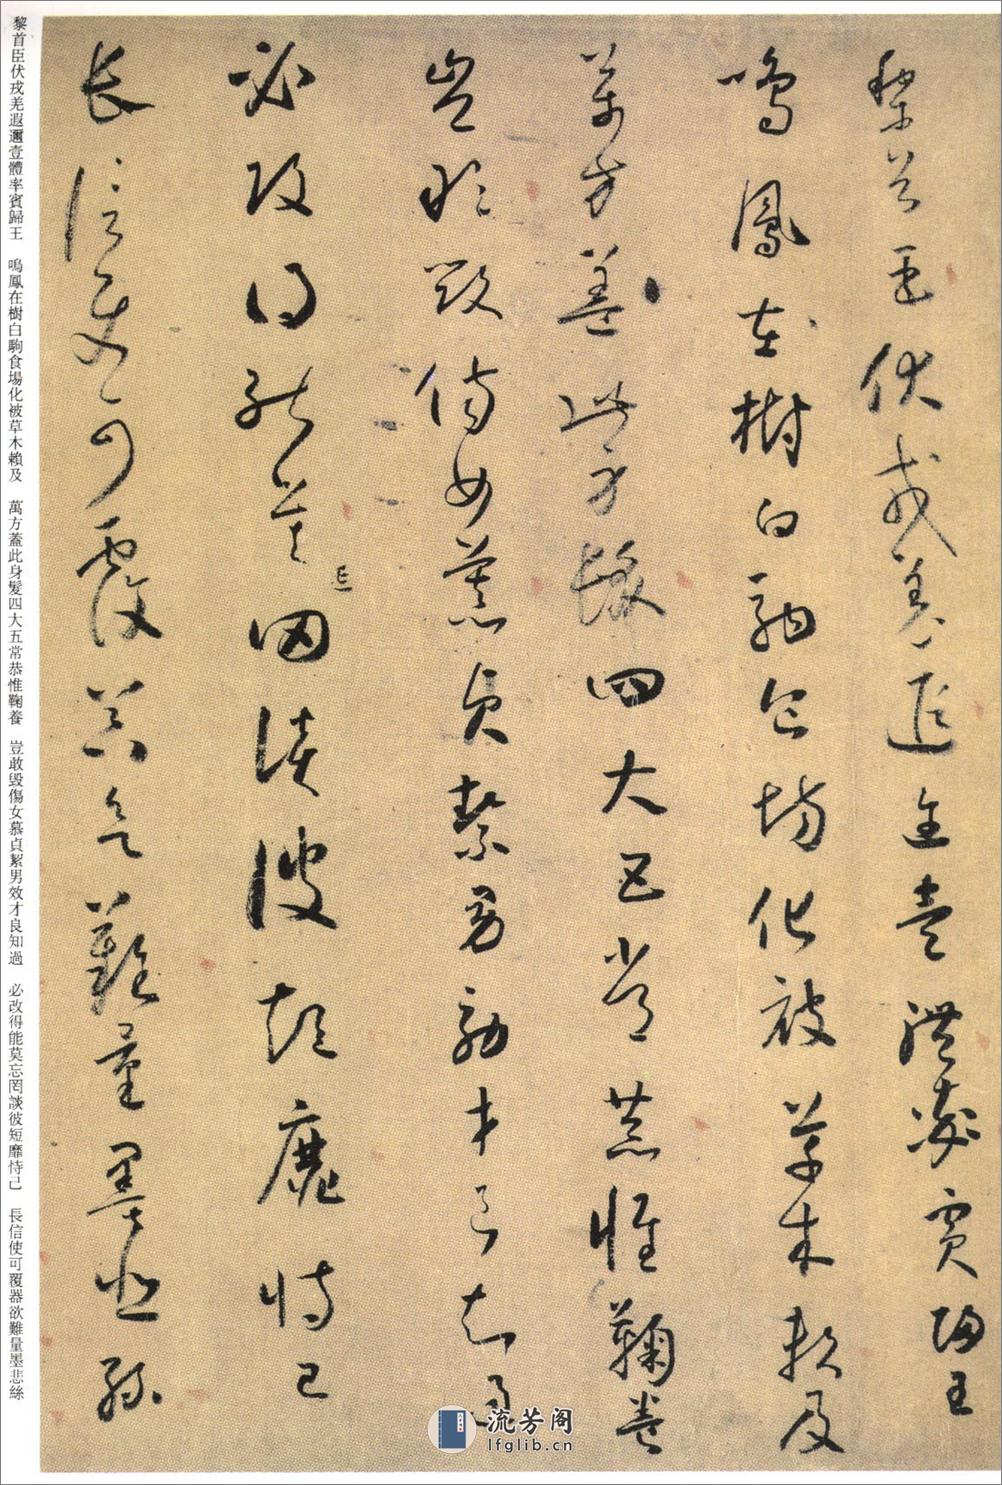 黎首臣伏戎羌遐邇壹體率賓歸王
鳴鳳在樹白駒食場化被草木賴及
萬方蓋此身髮四大五常恭惟鞠養
豈敢毀傷女慕貞絜男效才良知過
必改得能莫忘罔談彼短靡恃己
長信使可覆器欲難量墨悲絲
黎首臣伏戎羌遐邇壹體率賓歸王　鳴鳳在樹白駒食場化被草木賴及　萬方蓋此身髮四大五常恭惟鞠養　豈敢毀傷女慕貞絜男效才良知過　必改得能莫忘罔談彼短靡恃己　長信使可覆器欲難量墨悲絲
流芳阁
lfglib.cn